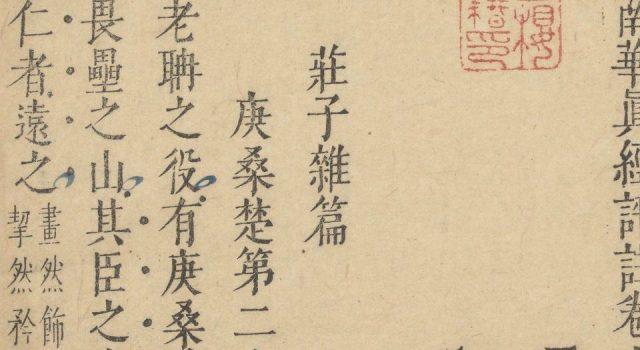 南華眞經評註卷
莊子雜篇
庚桑楚第二
老聃之役有庚桑
畏壘之山其臣之
仁者遠之畫然飾
挈然矜